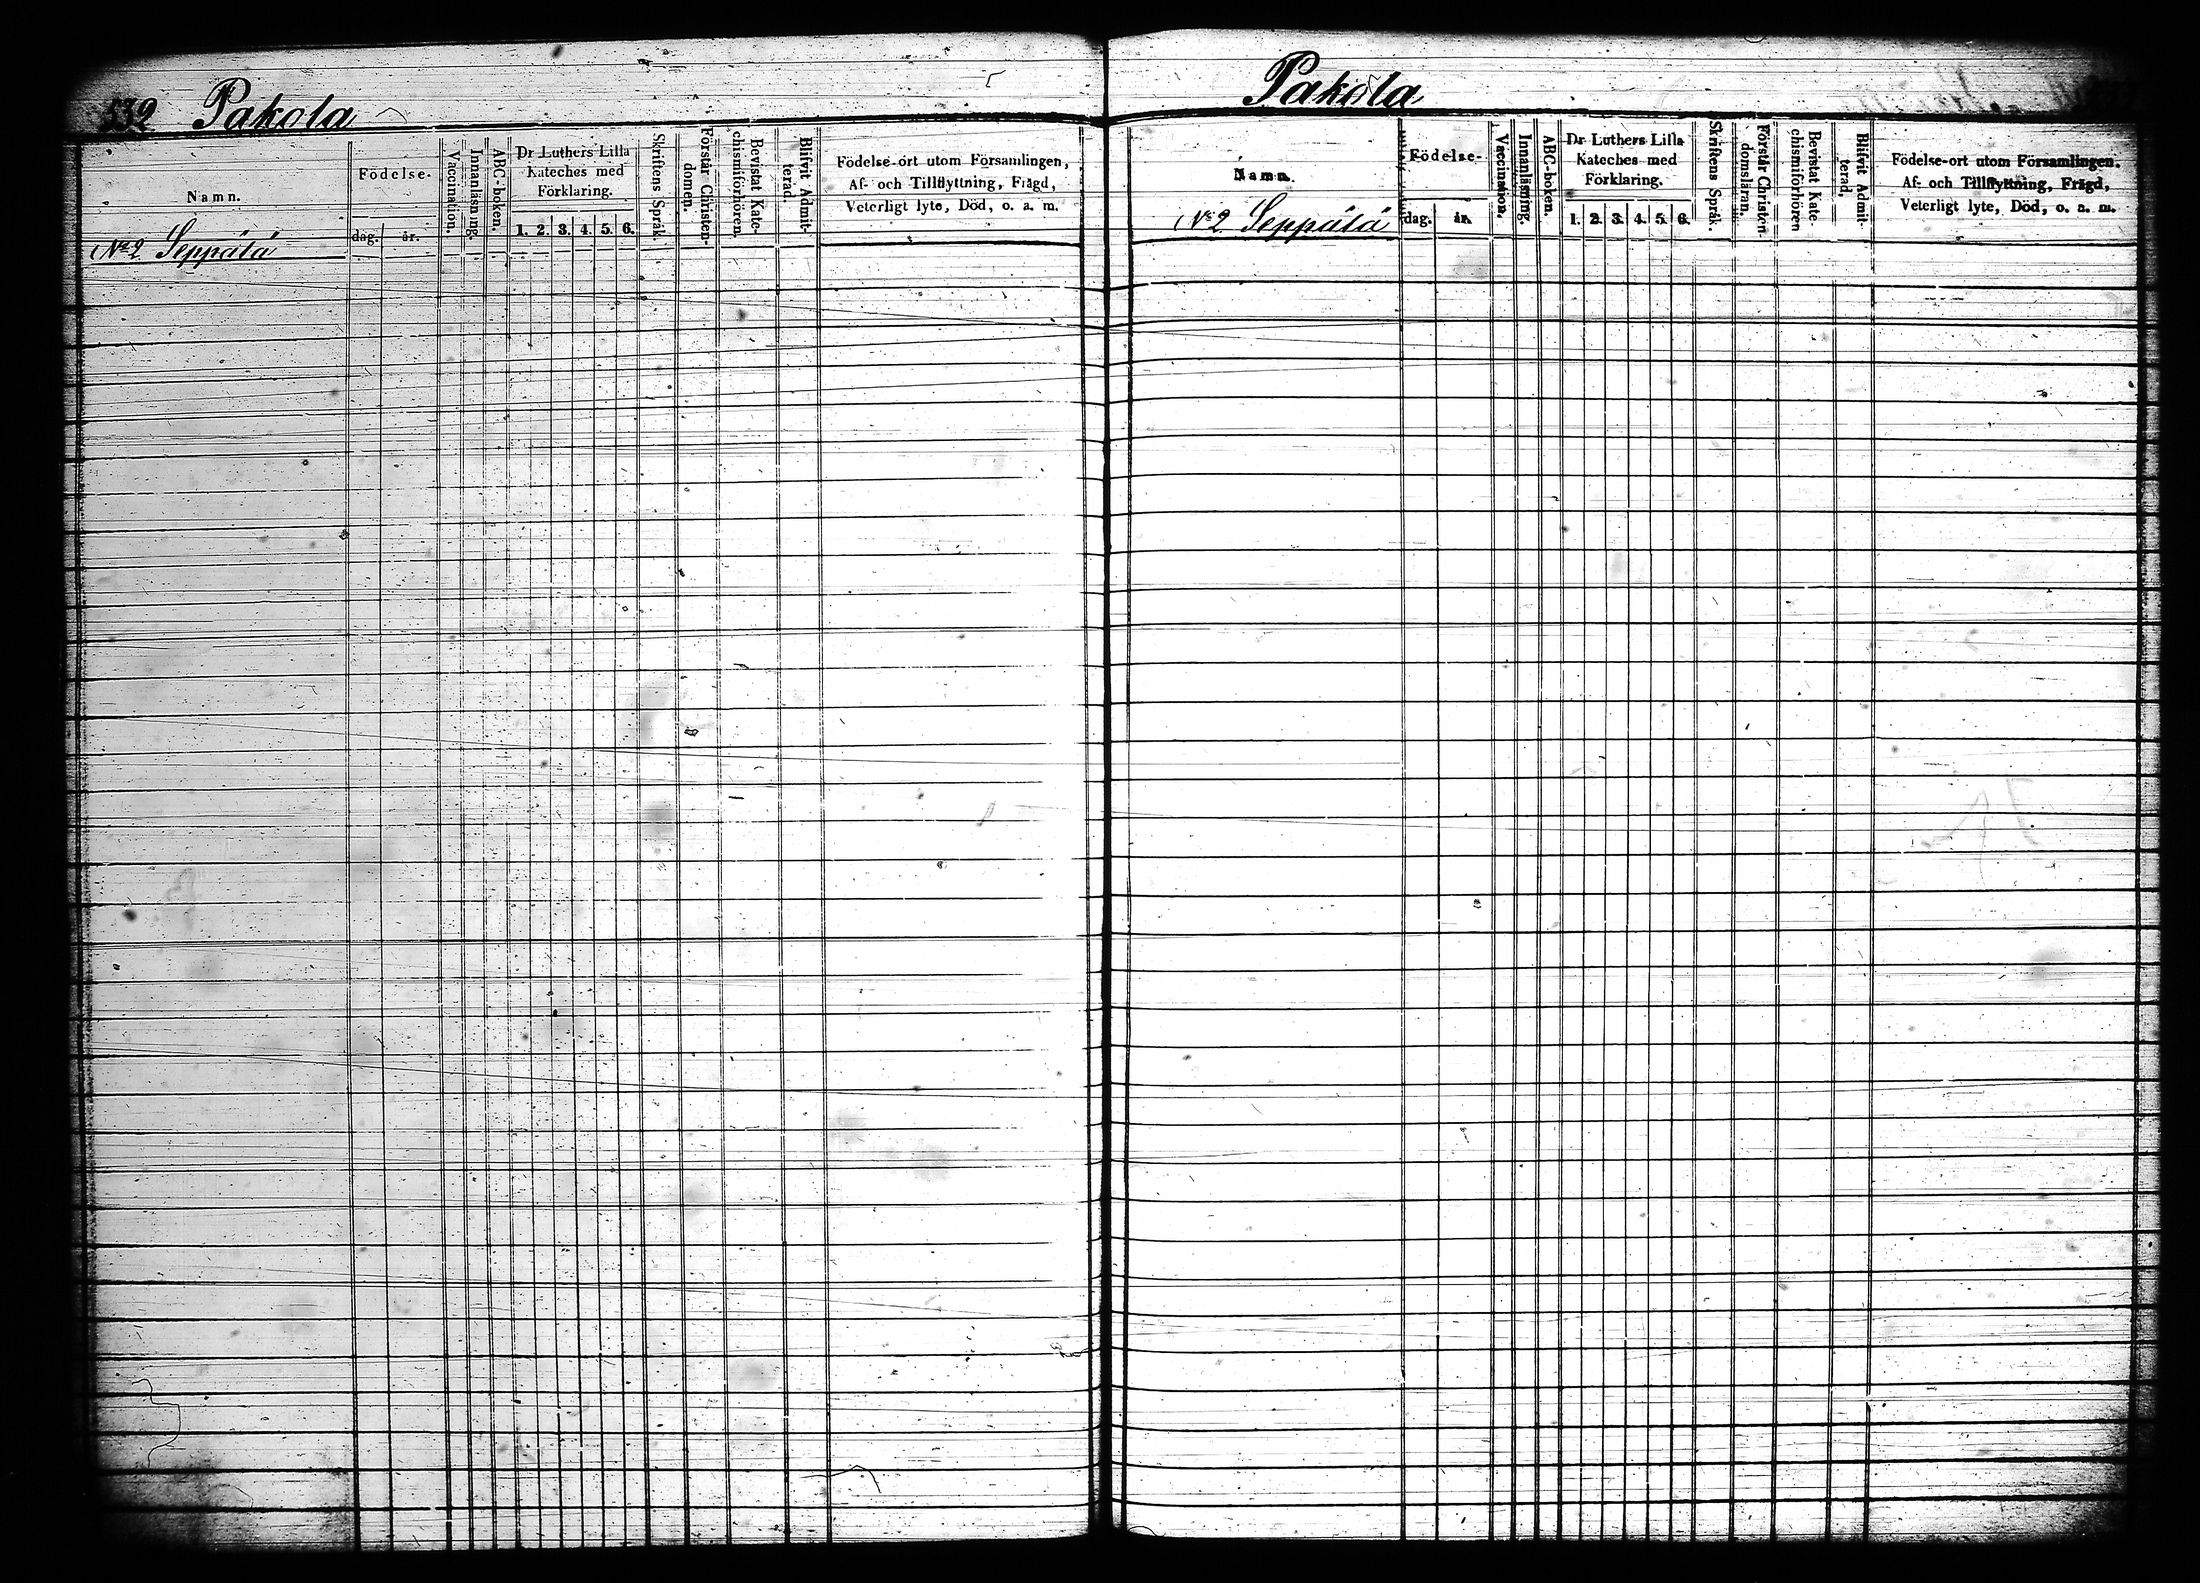 532 Pakola
Namn.
Födelse-
dag. år.
Vaccination.
Innanläsning.
ABC-boken.
Dr Luthers Lilla
Kateches med
Förklaring.
1. 2. 3. 4. 5. 6.
Skriftens Språk.
Förstår Christen-
domen.
Bevistat Kate-
chismiförhören.
Blifvit Admit-
terad.
Födelse-ort utom Församlingen,
Af- och Tillflyttning, Frägd,
Veterligt lyte, Död, o. a. m.
No 2 Seppälä
Pakola
Namn.
No 2 Seppälä
Födelse-
dag. år.
Vaccination.
Innanläsning.
ABC-boken.
Dr Luthers Lilla
Kateches med
Förklaring.
1. 2. 3. 4. 5. 6.
Skriftens Språk.
Förstår Christen-
domsläran.
Bevistat Kate-
chismiförhören
Blifvit Admit-
terad.
Födelse-ort utom Församlingen.
Af- och Tillflyttning, Frägd,
Veterligt lyte, Död, o. a. m.